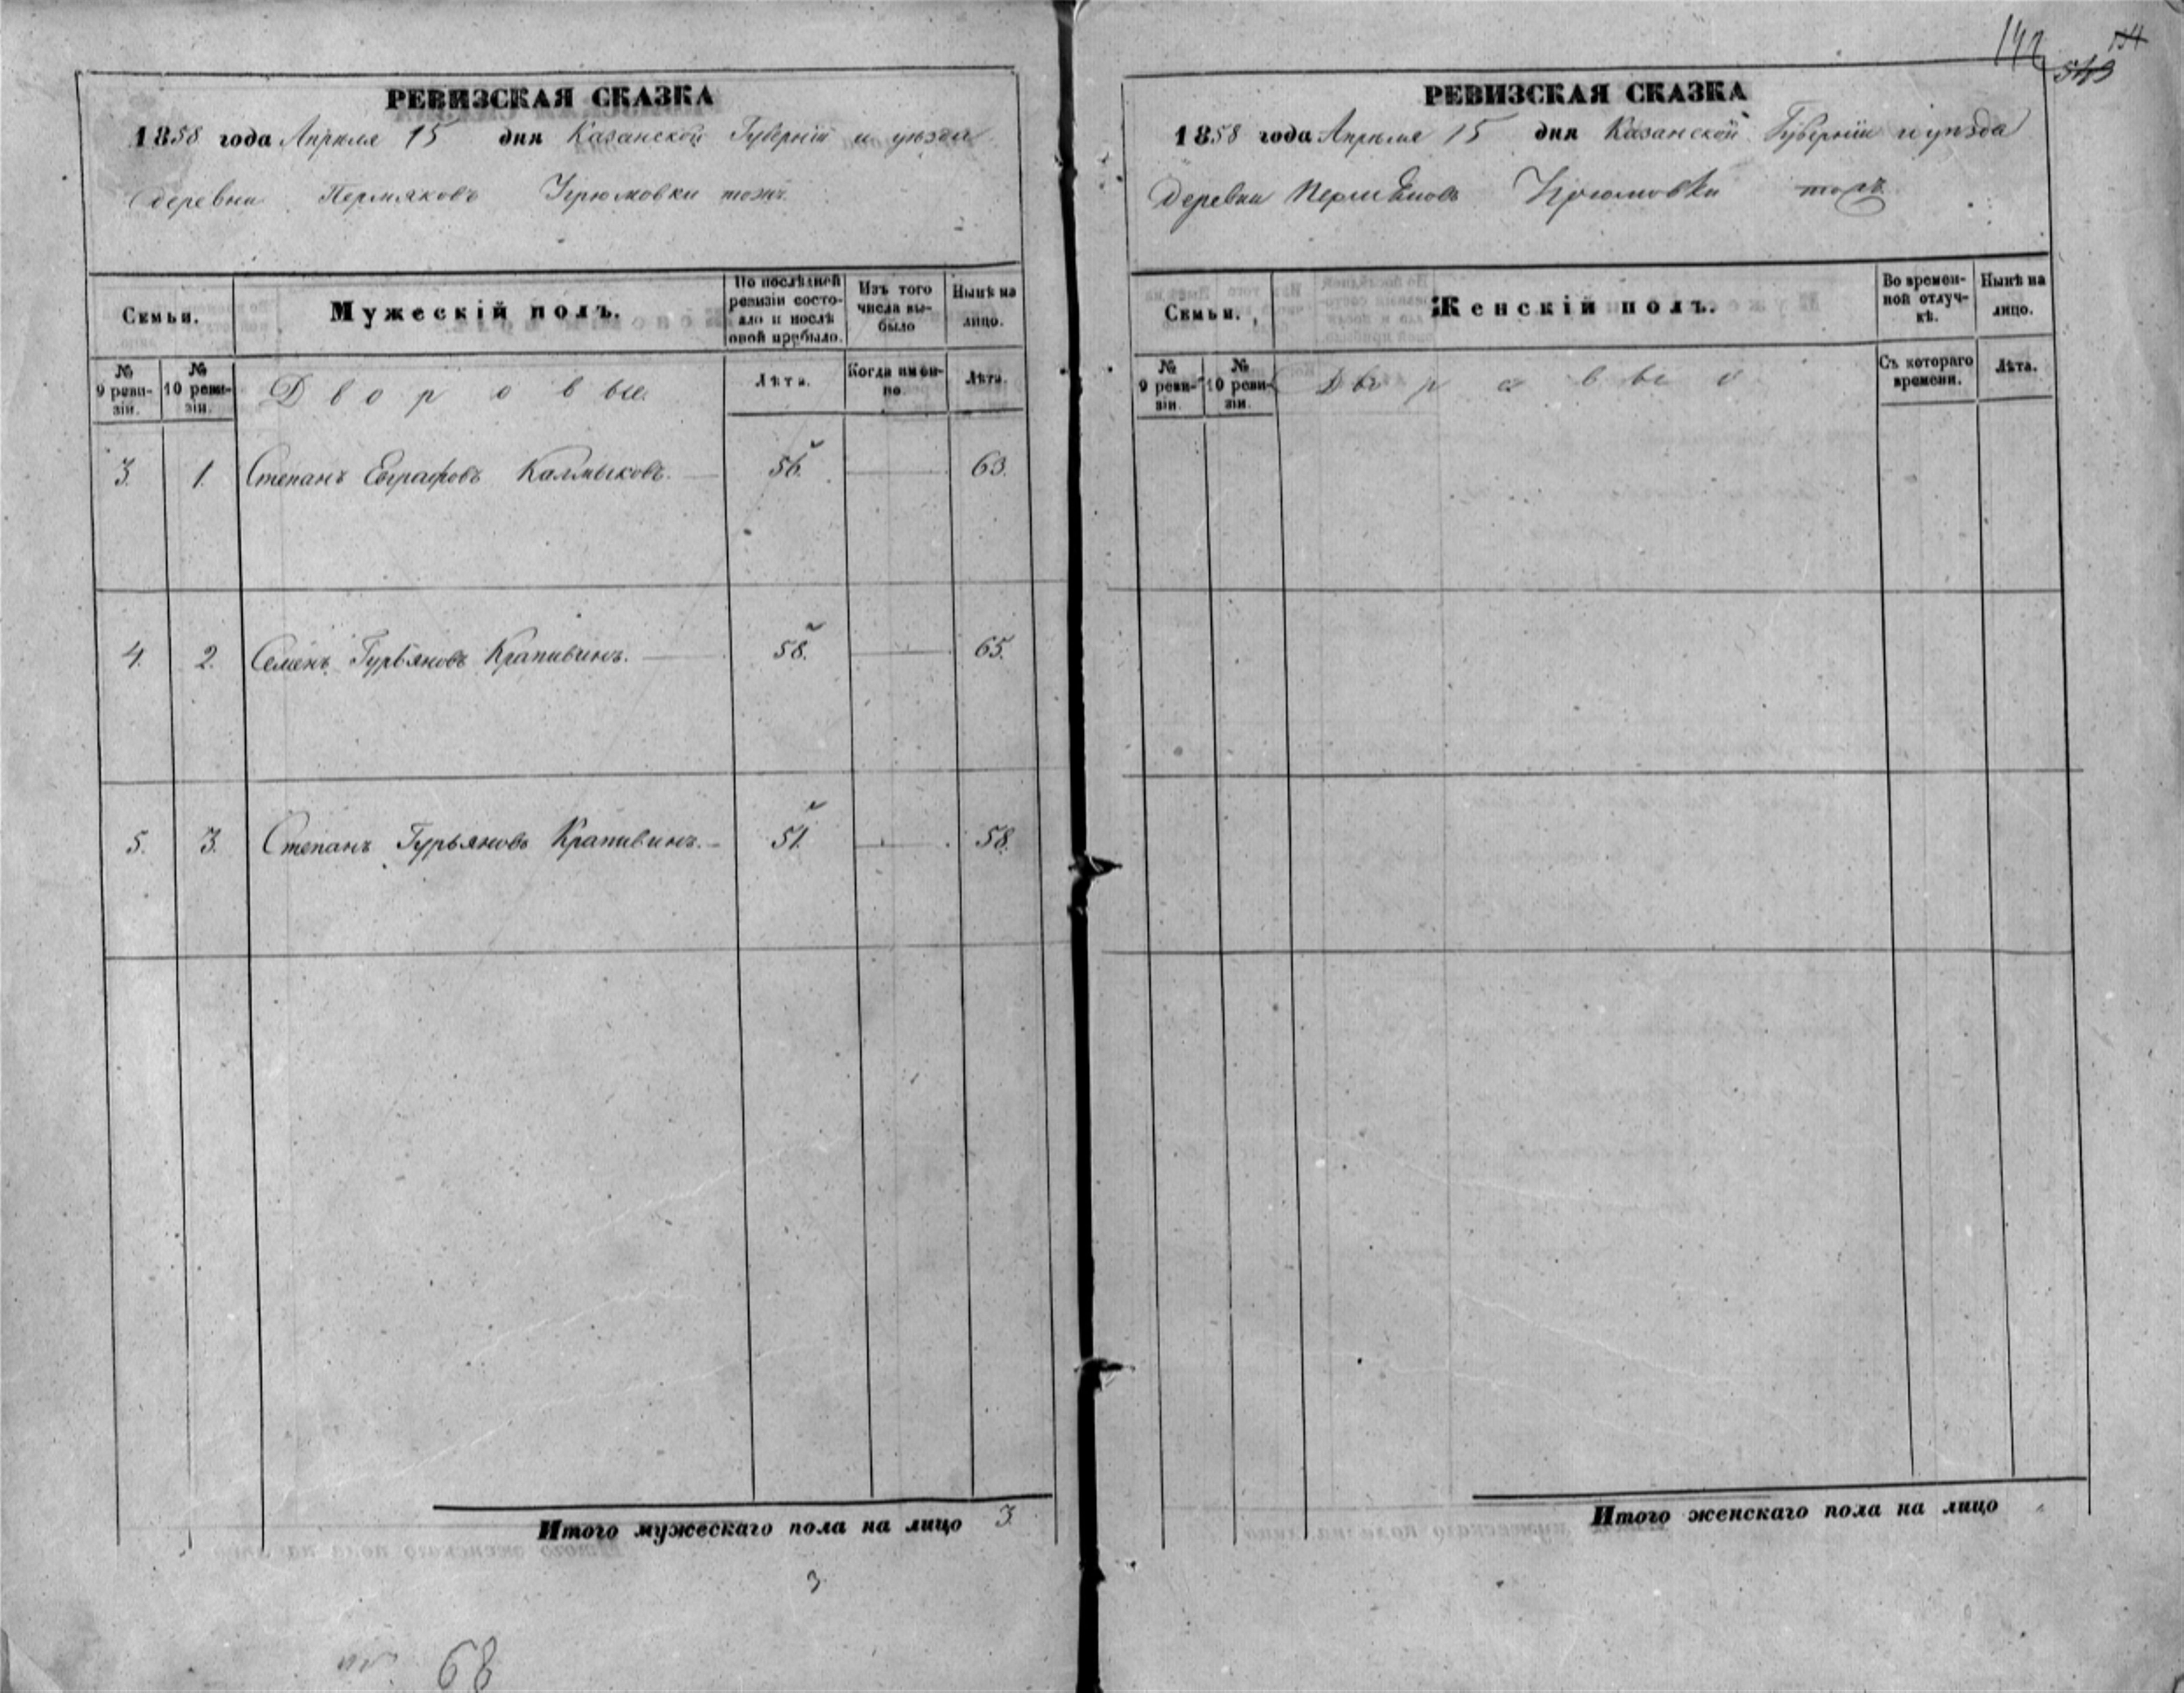 РЕВИЗСКАЯ СКАЗКА
1858 года Апреля 15 дня Казанской Губерніи и уѣзда
деревни Пермяковъ Угрюмовки тожъ.
Семьи.
Мужескій полъ.
По послѣдней ревизіи состояло и послѣ оной прибыло.
Изъ того числа выбыло
Нынѣ на лицо.
№ 9 ревизіи.
№ 10 ревизіи.
Дворовые.
Лѣта.
Когда именно.
Лѣта.
3. 1. Степанъ Евграфовъ Калмыковъ. 56. 63.
4. 2. Семенъ Гурьяновъ Крапивинъ. 58. 65.
5. 3. Степанъ Гурьяновъ Крапивинъ. 51. 58.
Итого мужескаго пола на лицо 3
3
68
142
РЕВИЗСКАЯ СКАЗКА
1858 года Апреля 15 дня Казанской Губерніи и уѣзда
деревни Угрюмовки тожъ
Семьи.
Женскій полъ.
Во временной отлучкѣ.
Нынѣ на лицо.
№ 9 ревизіи.
№ 10 ревизіи.
Съ котораго времени.
Лѣта.
Итого женскаго пола на лицо